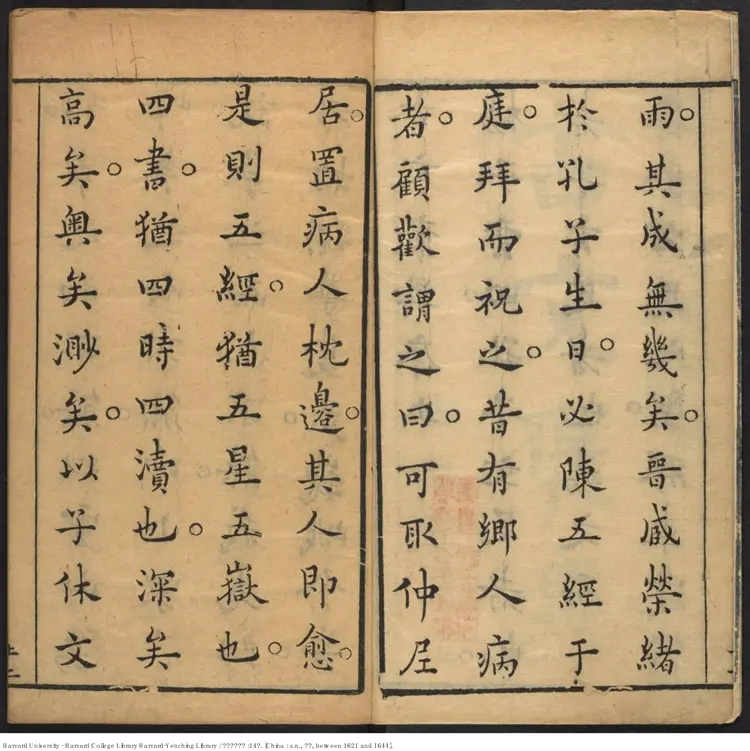 雨。其成無幾矣。晉臧榮緒
於孔子生日。必陳五經于
庭。拜而祝之。昔有鄉人病
者。顧歡謂之曰。可取仲尼
居。置病人枕邊。其人即愈。
是則五經。猶五星五嶽也。
四書。猶四時四瀆也。深矣
高矣。奧矣渺矣。以予休文
Harvard University - Harvard College Library Harvard-Yenching Library / ?????? :14?. [China : s.n., ??, between 1621 and 1644].